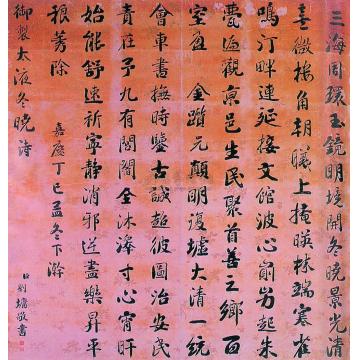 三海周環玉鏡明境開冬曉景光清
棱角朝曦上掩暎林端寒雀
鳴汀畔連延接文館波心起朱
甍遍觀京邑生民聚首善之鄉百
室盈 金元顛明復墟大清一統
會車書撫時鑒古誠超彼圖治安民
責在予九有閭閻全沐澤寸心宵旰
始能舒速祈寧靜消邪逆盡樂昇平
稂莠除 嘉慶丁巳孟冬下澣
御製太液冬曉詩 臣劉墉敬書